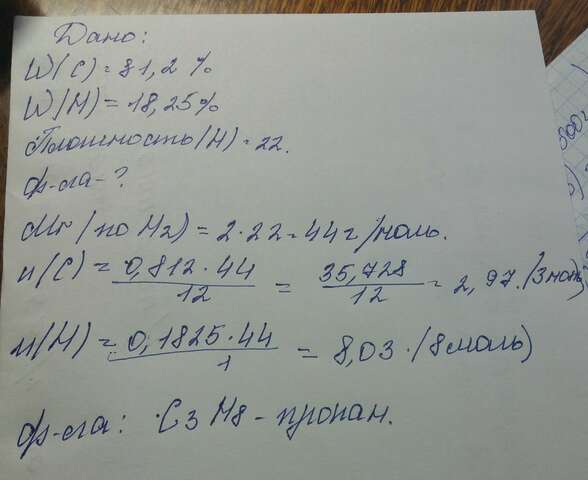 Дано:
W(C) = 81,2%
W(H) = 18,25%
Плотность(H) = 22.
ф-ла - ?
Mr(по H2) = 2·22 = 44 г/моль.
n(C) = 0,812·44 / 12 = 35,728 / 12 = 2,97. (3 моль)
n(H) = 0,1825·44 / 1 = 8,03. (8 моль)
ф-ла: C3H8 - пропан.